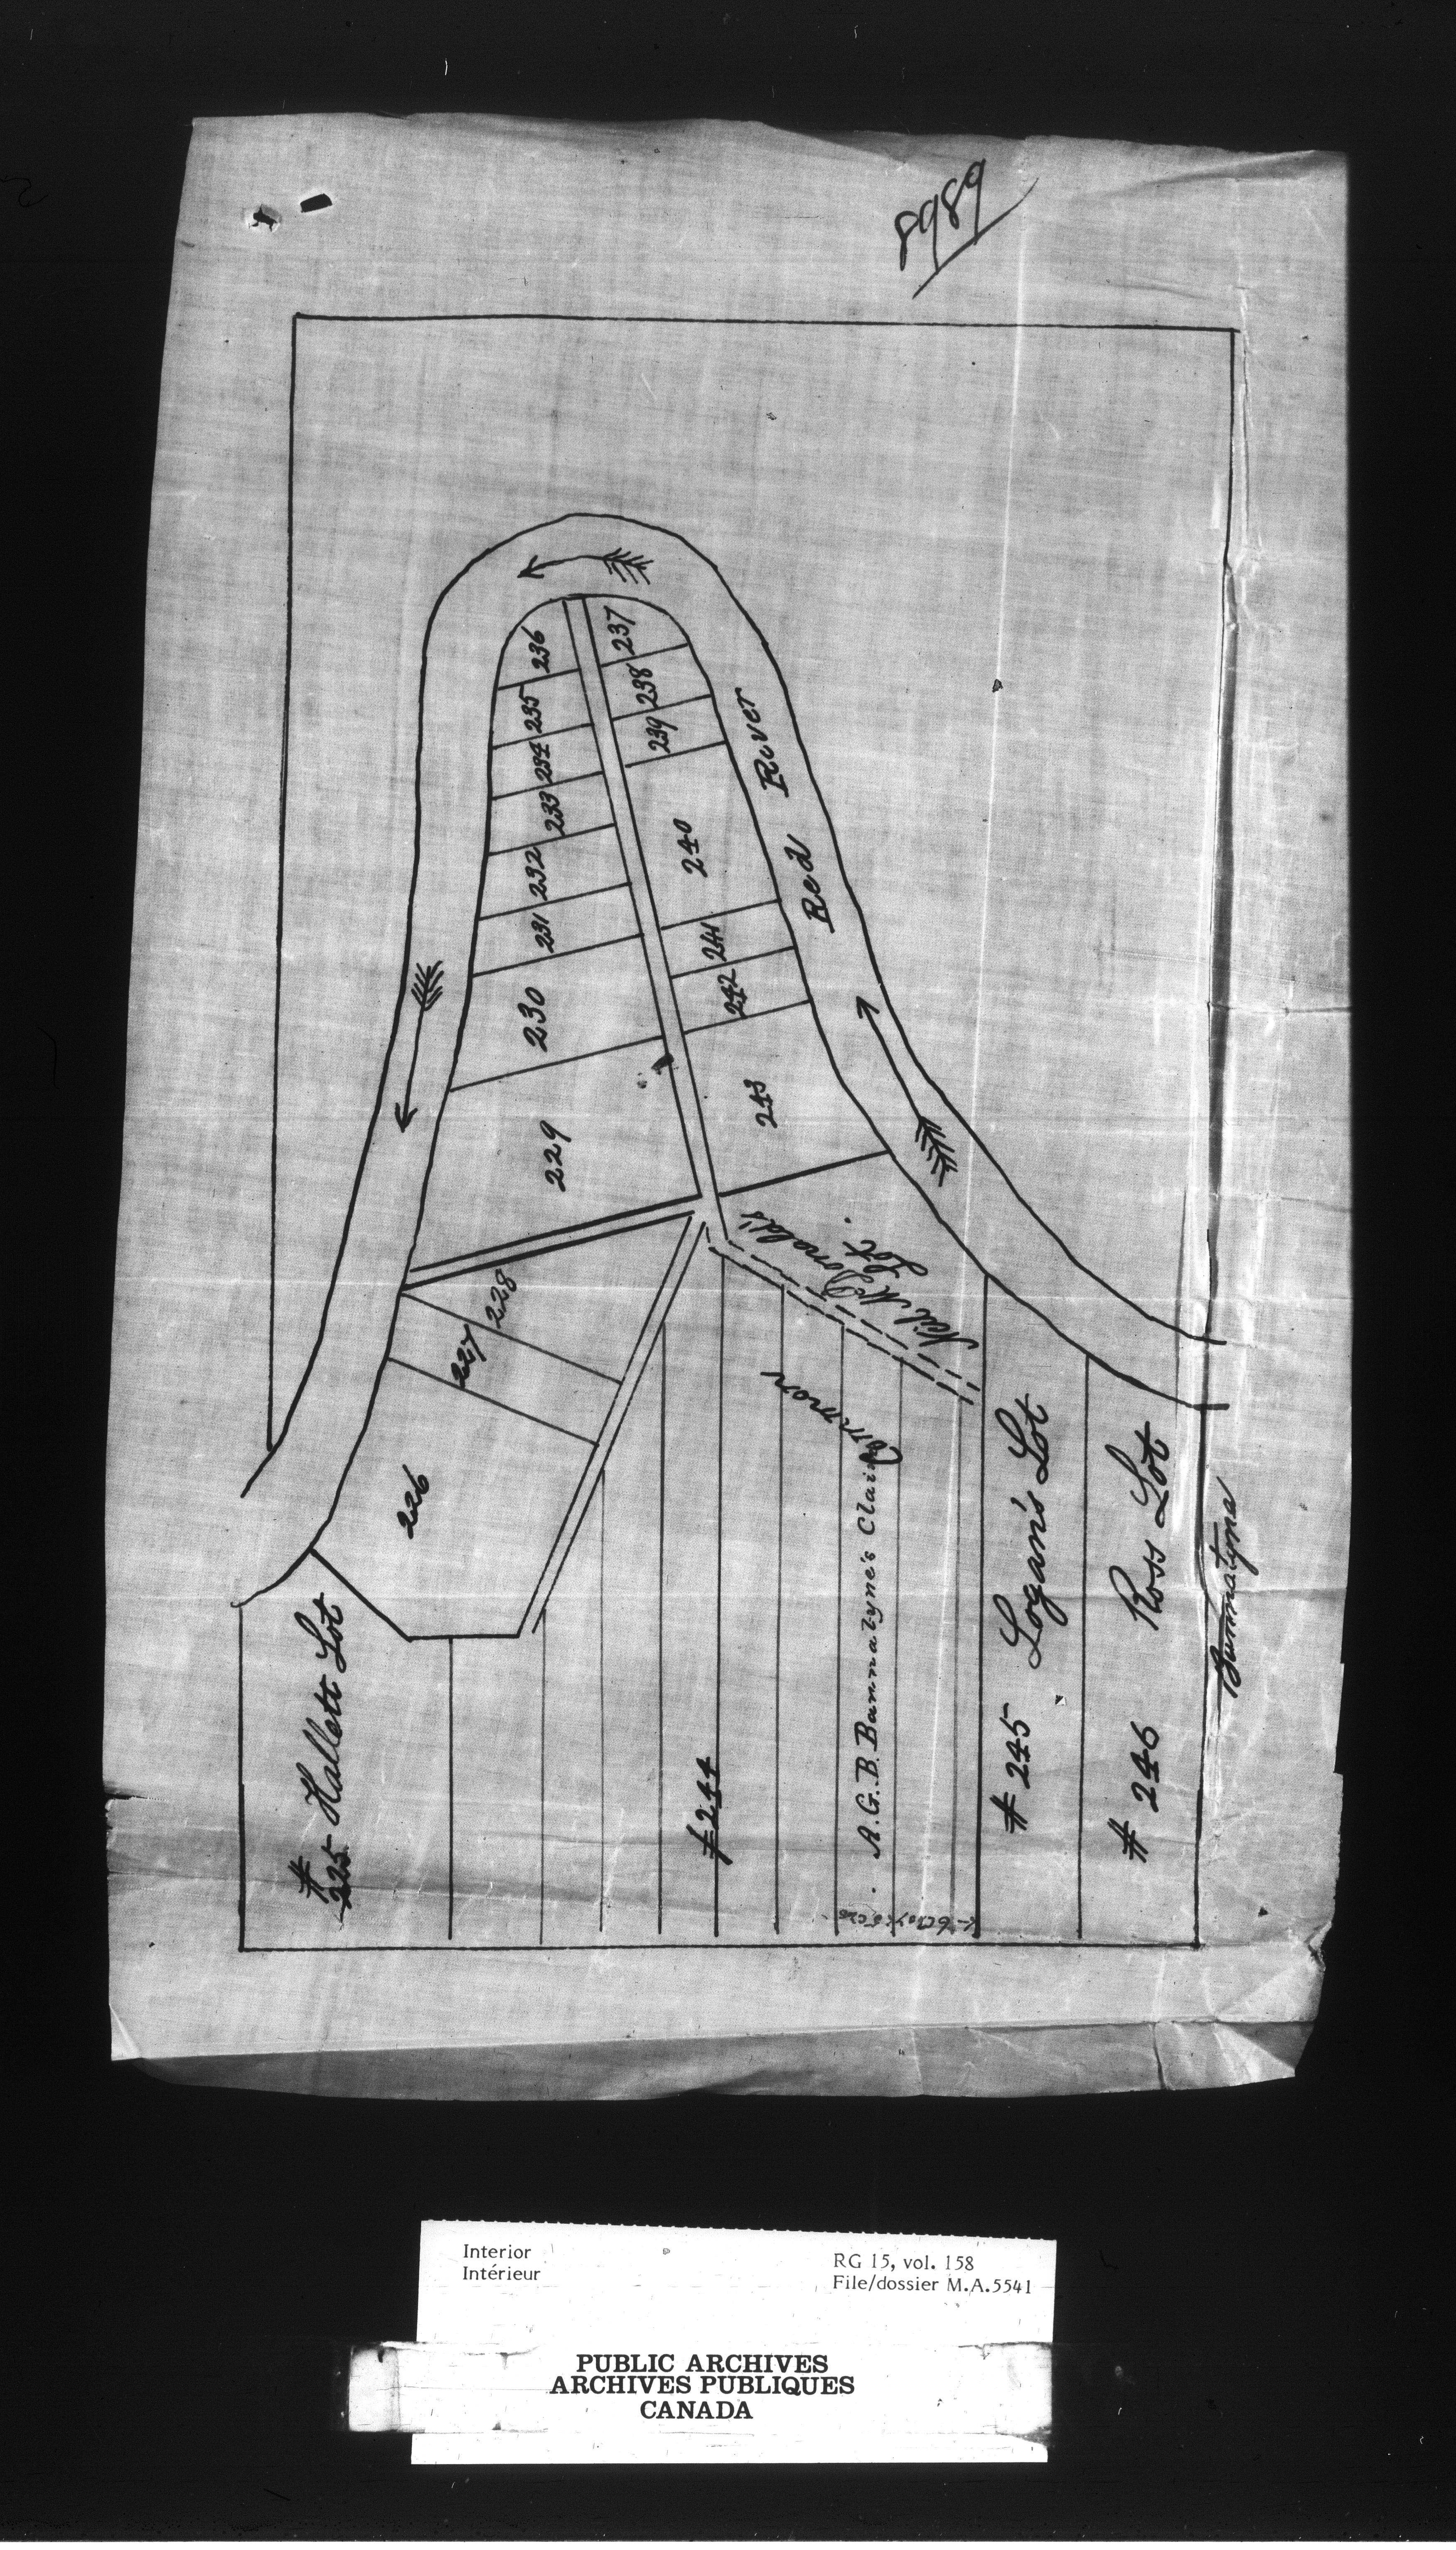 8989
236
237
235
238
234
239
233
240
232
231
241
230
242
243
229
Red River
Neil McDonald's
Lot.
228
227
226
Common
A.G.B. Bannatyne's Claim
#244
# 245 Logan's Lot
# 246 Ross Lot
Bannatyne
#
225 Hallett Lot
Interior
Intérieur
RG 15, vol. 158
File/dossier M.A.5541
PUBLIC ARCHIVES
ARCHIVES PUBLIQUES
CANADA